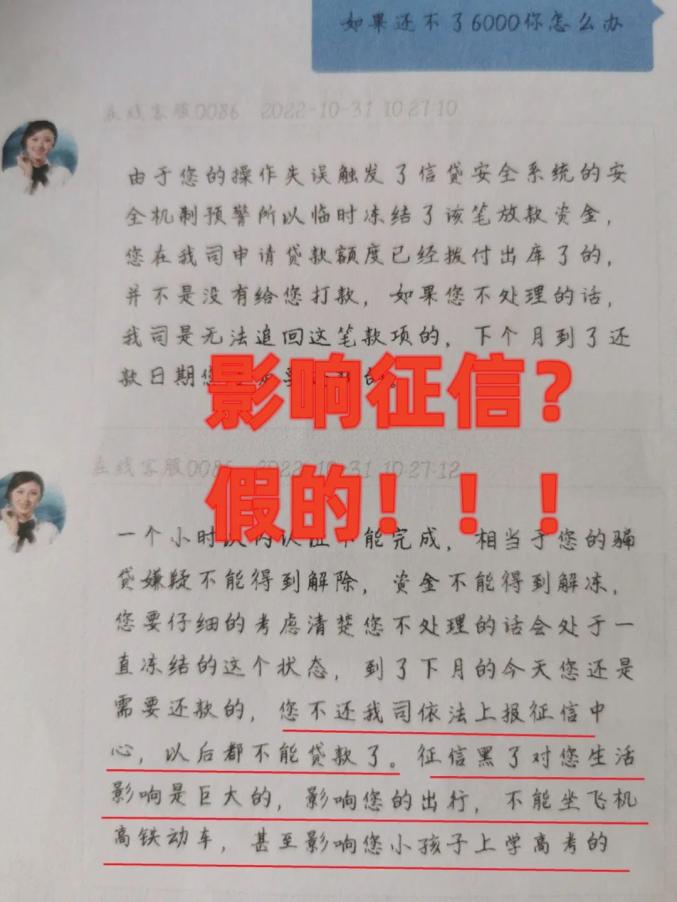 如果还不了6000你怎么办
在线客服0086 2022-10-31 10:27:10
由于您的操作失误触发了信贷安全系统的安
全机制预警所以临时冻结了该笔放款资金，
您在我司申请贷款额度已经拨付出库了的，
并不是没有给您打款，如果您不处理的话，
我司是无法追回这笔款项的，下个月到了还
款日期您
影响征信？
在线客服0086 2022-10-31 10:27:12
假的！！！
一个小时 不能完成，相当于您的骗
贷嫌疑不能得到解除，资金不能得到解冻，
您要仔细的考虑清楚您不处理的话会处于一
直冻结的这个状态，到了下月的今天您还是
需要还款的，您不还我司依法上报征信中
心，以后都不能贷款了。征信黑了对您生活
影响是巨大的，影响您的出行，不能坐飞机
高铁动车，甚至影响您小孩子上学高考的